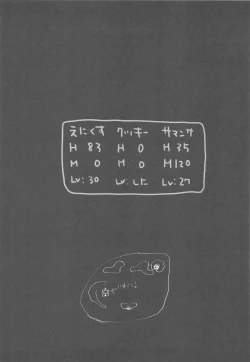 えにくす クッキー サマンサ
H 83 H 0 H 35
M 0 M 0 M120
Lv:30 Lv:した Lv:27